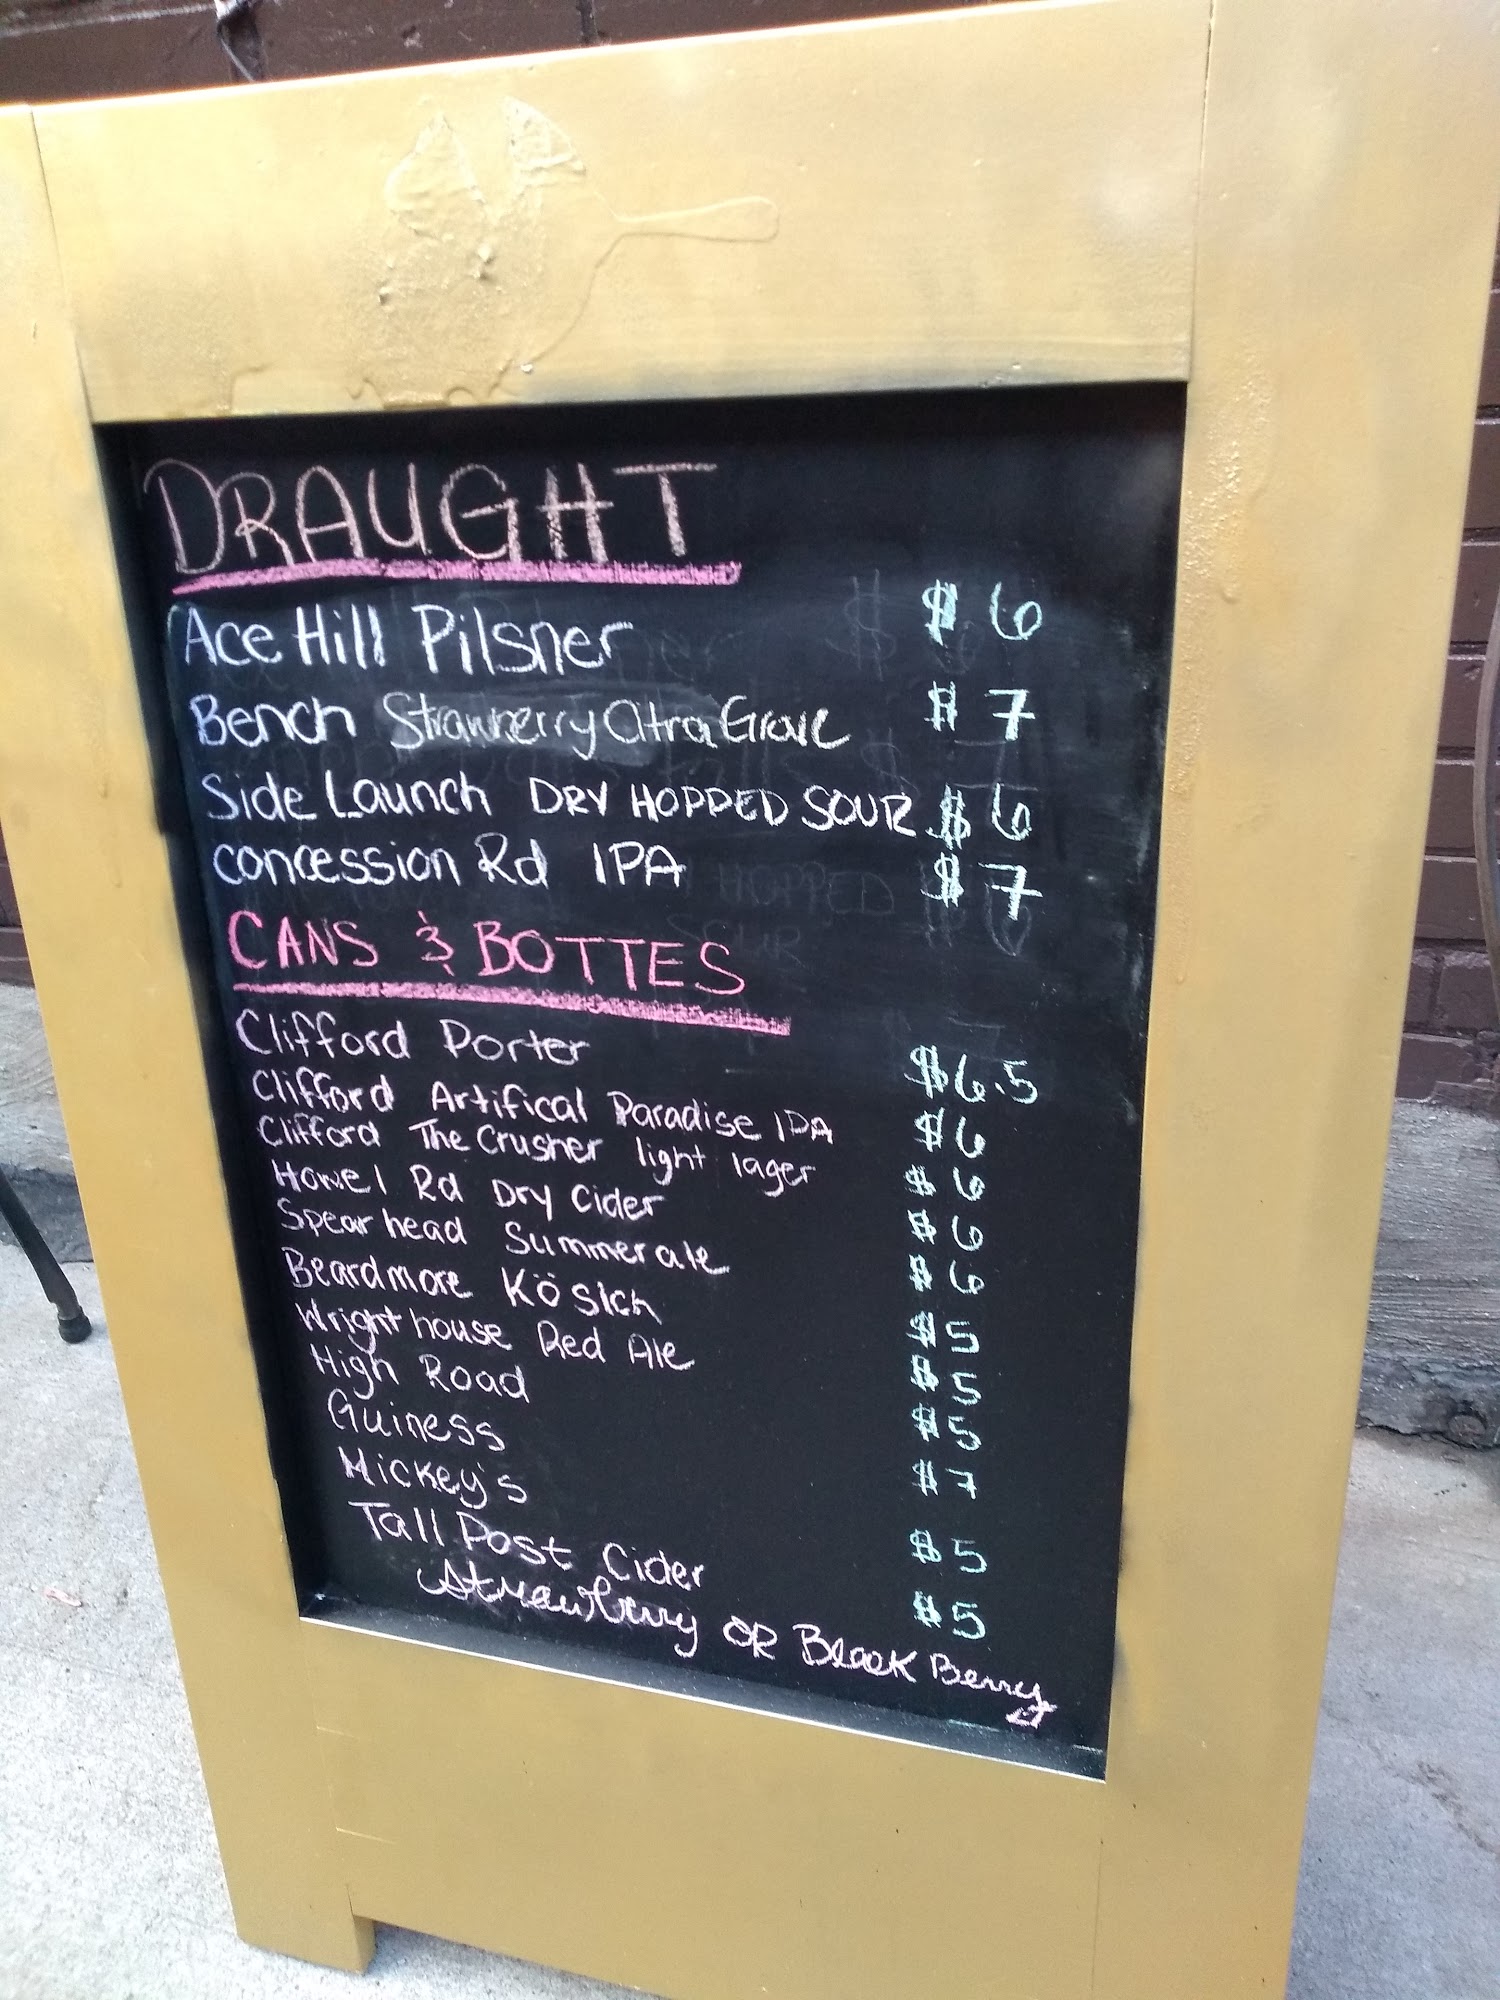 DRAUGHT
Ace Hill Pilsner $6
Bench Strawberry Citra Grove $7
Side Launch DRY HOPPED SOUR $6
Concession Rd IPA $7
CANS & BOTTES
Clifford Porter $6.5
Clifford Artifical Paradise IPA $6
Clifford The Crusher light lager $6
Howel Rd Dry Cider $6
Spearhead Summer ale $6
Beardmore Kösich $5
Wrighthouse Red Ale $5
High Road $5
Guiness $7
Mickey's $5
Tall Post Cider $5
Strawberry OR Black Berry